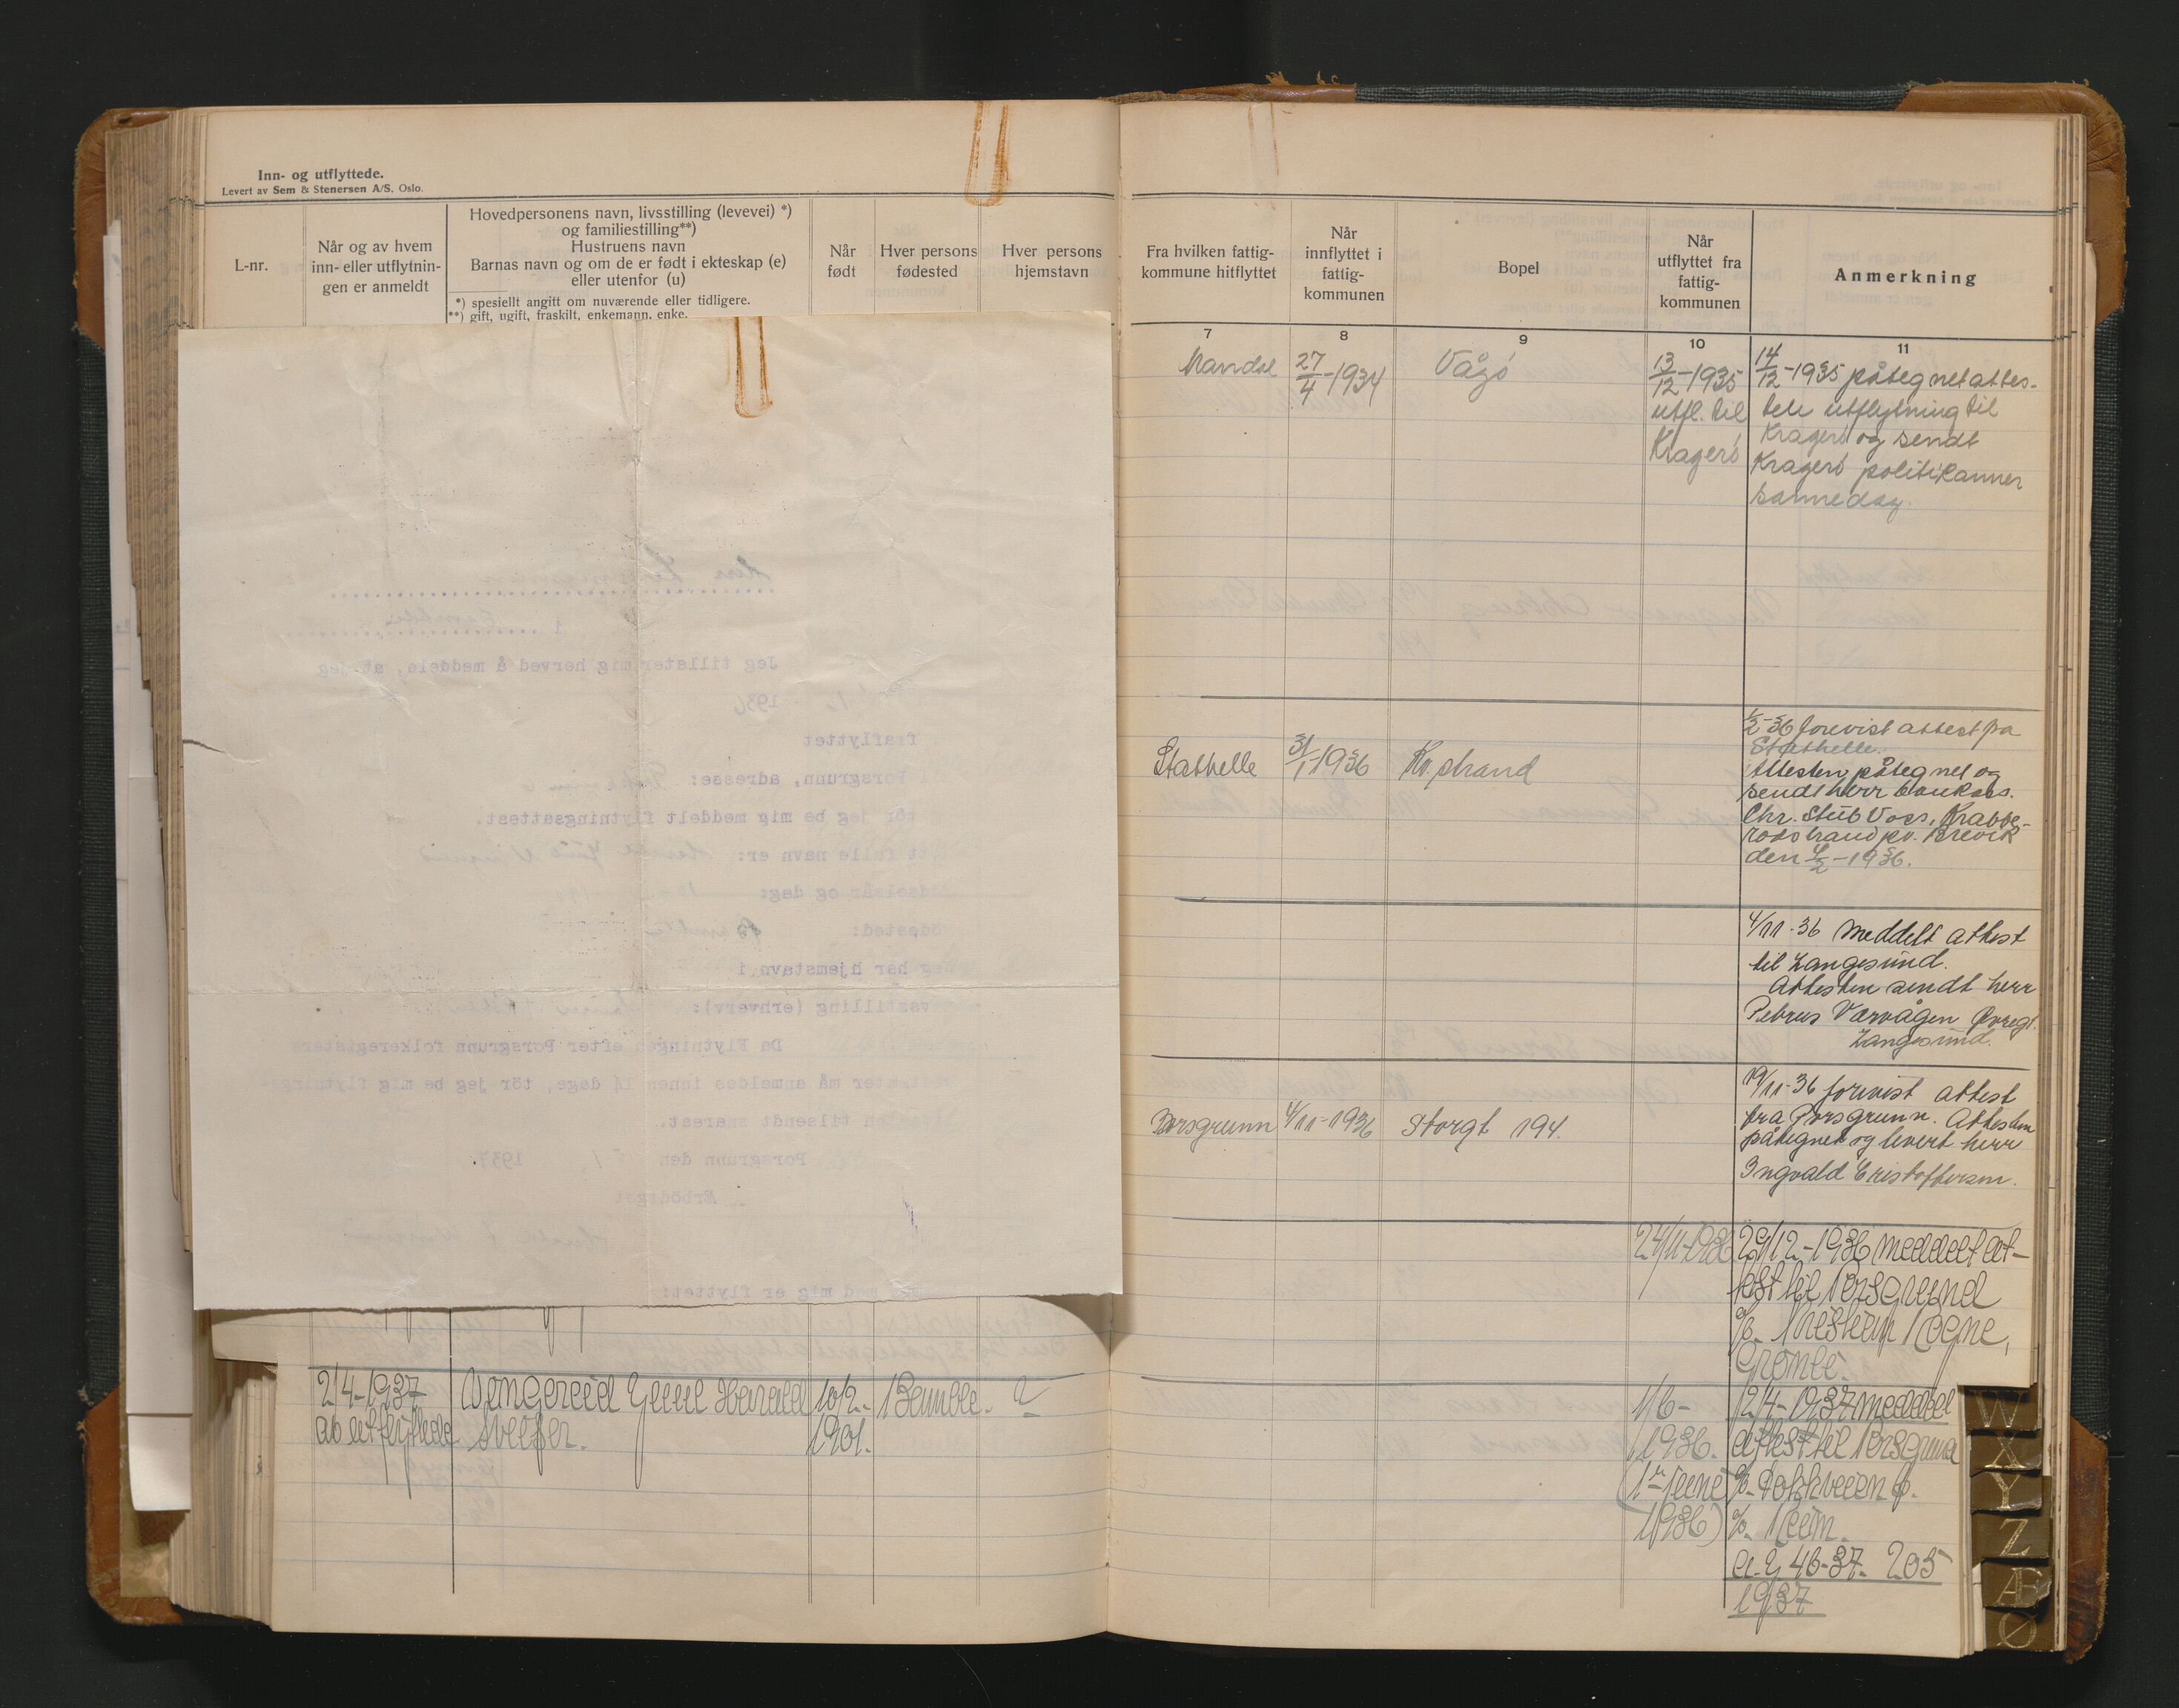 Inn- og utflyttede.
Levert av Sem & Stenersen A/S, Oslo.
L-nr.
Når og av hvem
inn- eller utflytnin-
gen er anmeldt
Hovedpersonens navn, livsstilling (levevei) *)
og familiestilling**)
Hustruens navn
Barnas navn og om de er født i ekteskap (e)
eller utenfor (u)
*) spesielt angitt om nuværende eller tidligere.
**) gift, ugift, fraskilt, enkemann, enke.
Når
født
Hver persons
fødested
Hver persons
hjemstavn
Jeg tillater mig herved å meddele, at jeg
1936
fraflyttet
Porsgrunn, adresse:
tör jeg be mig meddelt flytningsattest.
fulle navn er:
og dag:
har hjemstavn i
(erhverv):
Da flytningen efter Porsgrunn folkeregisters
må anmeldes innen 14 dage, tör jeg be mig flytnings-
tilsendt snarest.
Porsgrunn den 1937.
Ærbödigst
med mig er flyttet:
2/4-1937
av utflyttede
Vengereid Gunl Harald
10/2-
1901.
Bamble.
Fra hvilken fattig-
kommune hitflyttet
Når
innflyttet i
fattig-
kommunen
Bopel
Når
utflyttet fra
fattig-
kommunen
Anmerkning
7
8
9
10
11
Mandal
27/4-1934
Vågö
13/12-1935
utfl. til
Kragerö
14/12-1935 påtegnet attes-
ten utflytning til
Kragerö og sendt
Kragerö politikammer
samme dag.
Stathelle
31/1-1936
Kv. strand
1/2-36 forevist attest fra
Stathelle.
Attesten påtegnet og
sendt herr bankass.
Chr. Stub Voss, Krabbe-
rödstrand pr. Brevik
den 4/2-1936.
4/11-36 meddelt attest
til Langesund.
Attesten sendt herr
Petrus Varvågen Övregt.
Langesund.
Porsgrunn
4/11-1936
Storgt 194.
19/11-36 forevist attest
fra Porsgrunn. Attesten
påtegnet og levert herr
Ingvald Cristoffersen.
24/11-1936
29/12-1936 meddelt at-
test til Porsgrund
1/6-
1936.
(1ste juni
1936)
12/4-1937 meddel
attest til Porsgrunn
46-37. 205
1937
W
X
Y
Z
Æ
Ø